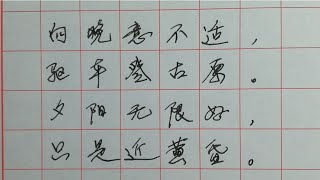 向晚意不适，
驱车登古原。
夕阳无限好，
只是近黄昏。